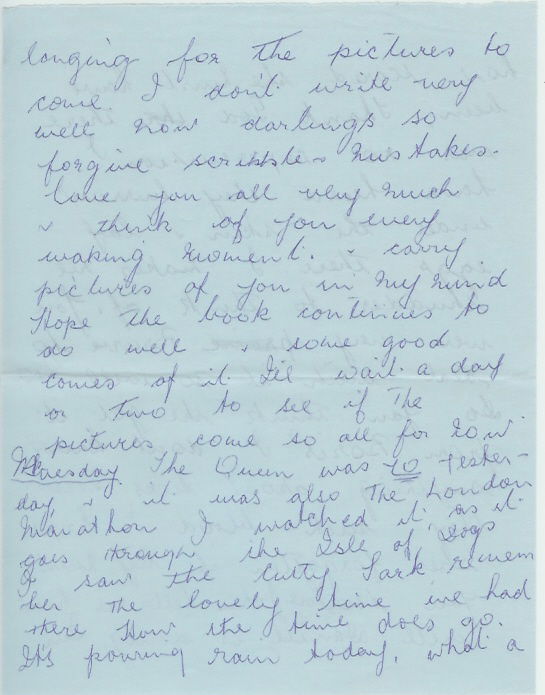 longing for the pictures to
come. I don't write very
well now darlings so
forgive scribble & mistakes.
love you all very much
& think of you every
waking moment. & carry
pictures of you in my mind
Hope the book continues to
do well & some good
comes of it I'll wait a day
or two to see if the
pictures come so all for now
Tuesday. The Queen was 70 Yester-
day, & it was also The London
Marathon I watched it, as it
goes through the Isle of Dogs
I saw the Cutty Sark remem
ber the lovely time we had
there How the time does go.
It's pouring rain today, what a